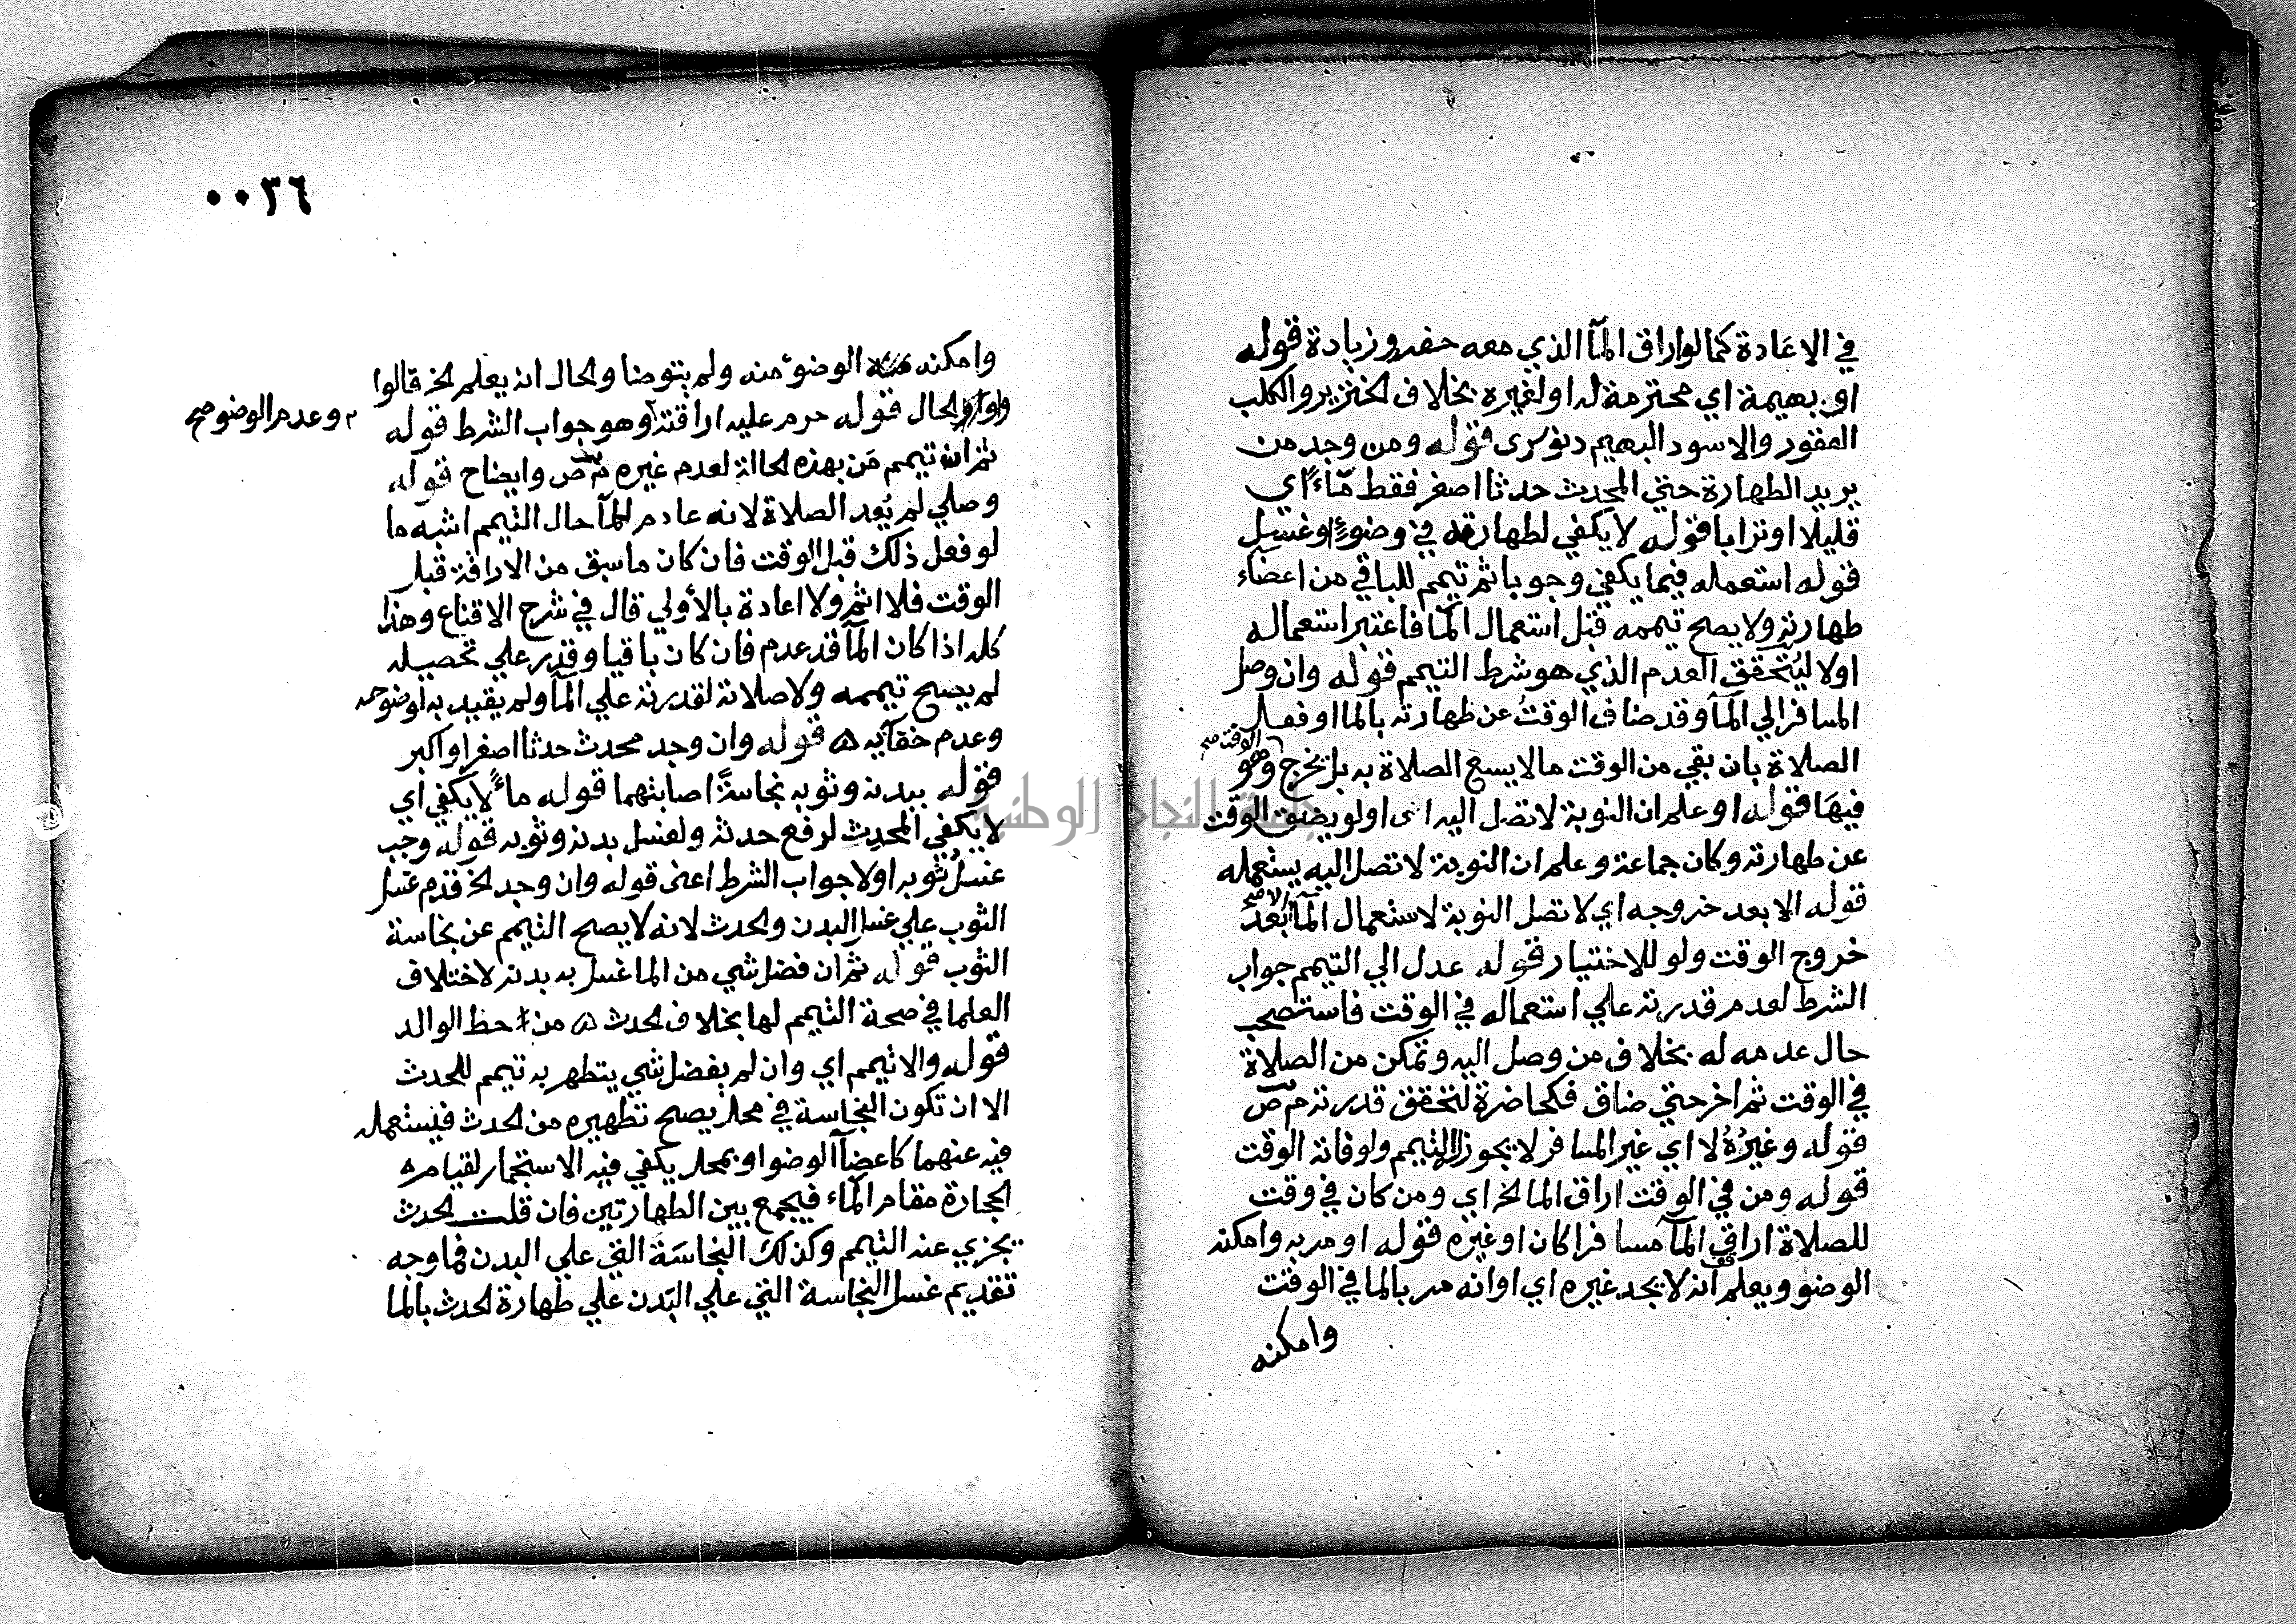 في الاعادة كما لو اراق المآ الذي معه حفيد وزيادة قوله
او بهيمة اي محترمة له او لغيره بخلاف الخنزير والكلب
العقور والاسود البهيم دنوشرى قوله ومن وجد من
يريد الطهارة حتي المحدث حدثا اصغر فقط مّاءً اي
قليلا او ترابا قوله لا يكفي لطهارته في وضوءٍ او غسلٍ
قوله استعمله فيما يكفي وجوبا ثم تيمم للباقي من اعضاء
طهارته ولا يصح تيممه قبل استعمال المآ فاعتبر استعماله
اولا ليتحقق العدم الذي هو شرط التيمم قوله وان وصل
المسافر الي المآ وقد ضاق الوقتُ عن طهارته بالما او فعل
الصلاة بان بقي من الوقت ما لا يسع الصلاة به بل يخرج الوقت صح وهو
فيهَا قوله او علم ان النوبة لا تصل اليه اى او لو يضق الوقت
عن طهارته وكان جماعة وعلم ان النوبة لا تصل اليه يستعمله
قوله الا بعد خروجه اي لا تصل النوبة لاستعمال المآ الا صح بَعْد
خروج الوقت ولو للاختيار قوله عدل الي التيمم جواب
الشرط لعدم قدرته علي استعماله في الوقت فاستصحب
حال عدمه له بخلاف من وصل اليه وتمكن من الصلاة
في الوقت ثم اخر حتي ضاق فكحاضرة لتحقق قدرته م ص
قوله وغيرُهُ لا اي غير المسافر لا يجوز له التيمم ولو فاته الوقت
قوله ومن في الوقت اراق الما الخ اي ومن كان في وقت
للصلاة اراق المآ مسافرا كان او غيره قوله او مر به وامكنه
الوضو ويعلم انه لا يجد غيره اي او انه مر بالما في الوقت
وامكنه
٠٠٣٦
وامكنه الوضوء منه ولم يتوضا والحال انه يعلم الخ قالوا
واو الحال قوله حرم عليه اراقته وهو جواب الشرط قوله
وعدم الوضو صح
ثم ان تيمم مَن بهذه الحالة لعدم غيره م ص وايضاح قوله
وصلي لم يُعد الصلاة لانه عادم للمآ حال التيمم اشبه ما
لو فعل ذلك قبل الوقت فان كان ما سبق من الاراقة قبل
الوقت فلا اثم ولا اعادة بالأولي قال في شرح الاقناع وهذا
كله اذا كان المآ قد عدم فان كان باقيا وقدر علي تحصيله
لم يصح تيممه ولا صلاته لقدرته علي المآ ولم يقيد به لوضوحه
وعدم خفآئه ه قوله وان وجد محدث حدثا اصغر او اكبر
قوله ببدنه وثوبه نجاسةً اصابتهما قوله ماءً لا يكفي اي
لا يكفي المحدِث لرفع حدثه ولغسل بدنه وثوبه قوله وجب
غسلُ ثوبه اولا جواب الشرط اعنى قوله وان وجد الخ فقدم غسل
الثوب علي غسل البدن والحدث لانه لا يصح التيمم عن نجاسة
الثوب قوله ثم ان فضل شي من الما غسل به بدنه لاختلاف
العلما في صحة التيمم لها بخلاف الحدث ه من خط الوالد
قوله والا تيمم اي وان لم يفضل شي يتطهر به تيمم للحدث
الا ان تكون النجاسة في محل يصح تطهيره من الحدث فيستعمله
فيه عنهما كاعضآ الوضو او بمحل يكفي فيه الاستجمار لقيام
الحجارة مقام المآء فيجمع بين الطهارتين فان قلت الحدث
يجزي عنه التيمم وكذلك النجاسَة التي علي البدن فما وجه
تقديم غسل النجاسة التي علي البَدن علي طهارة الحدث بالما
جامعة النجاح الوطنية